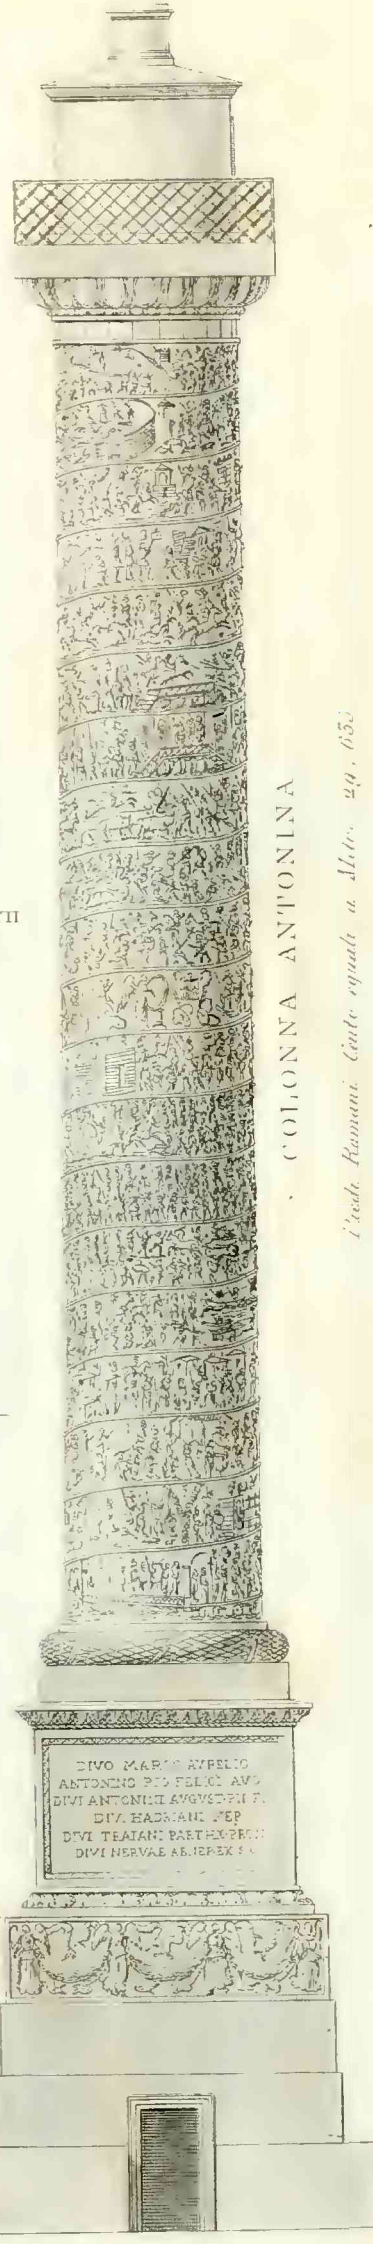 VII
COLONNA ANTONINA
Piedi Romani Cento eguali a Metr. 29,
DIVO MARCO AVRELIO
ANTONINO PIO FELICI AVG
DIVI ANTONINI AVGVST PII F.
DIVI HADRIANI NEP
DIVI TRAIANI PARTHIC PRON
DIVI NERVAE ABNEP EX S C